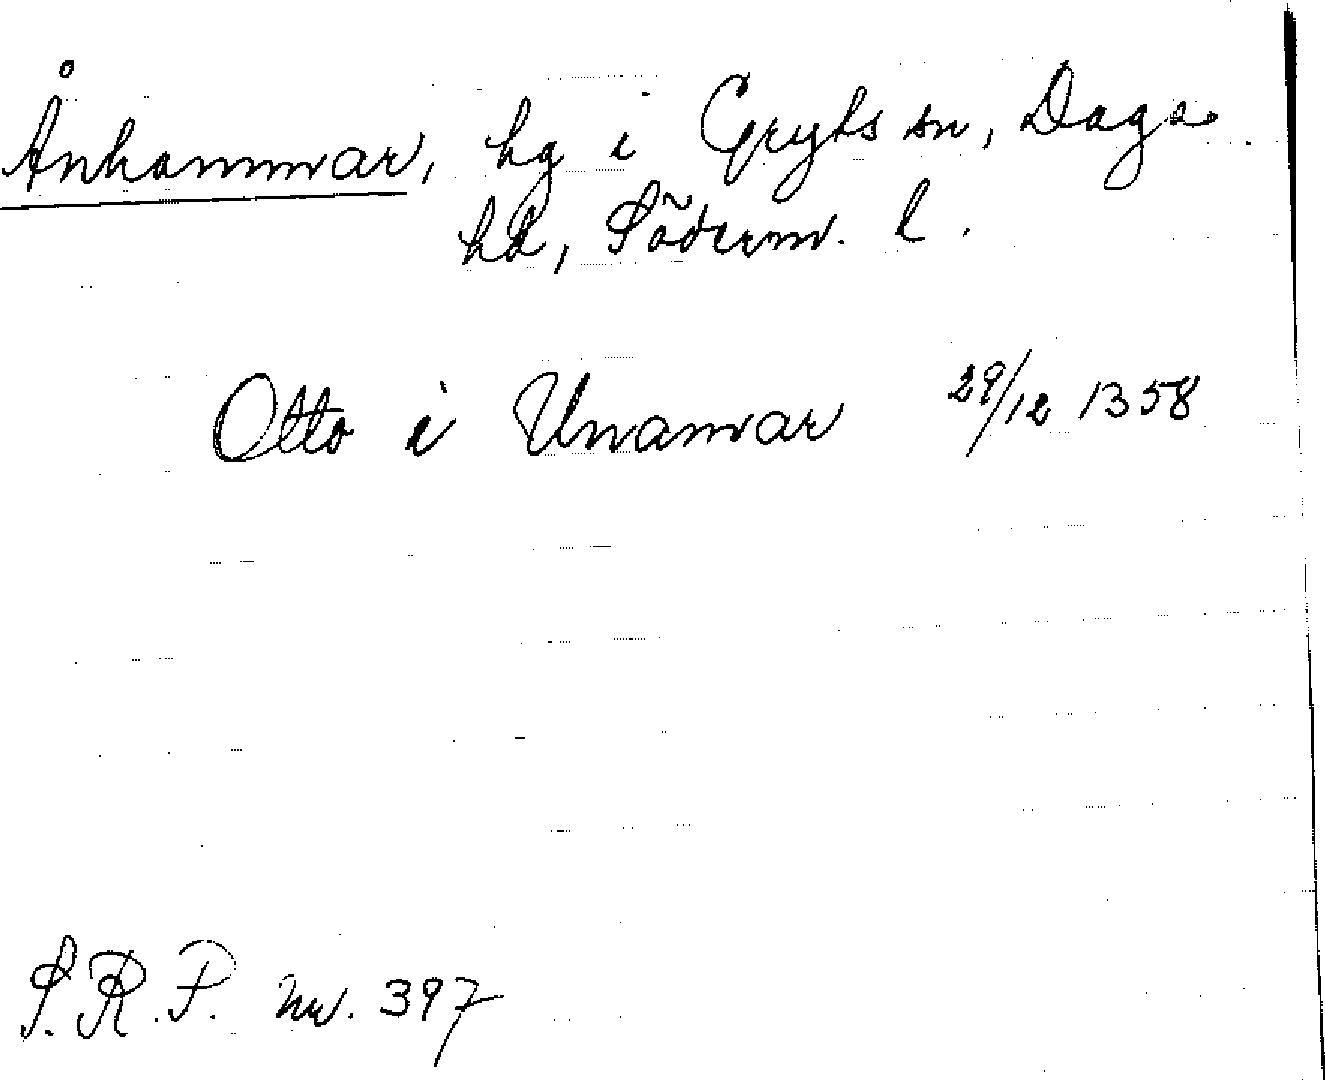 Ånhammar, hg i Gryts sn, Daga
hd, Söderm. l.
Otto i Unamar 29/12 1358
S.R.P. nr. 397